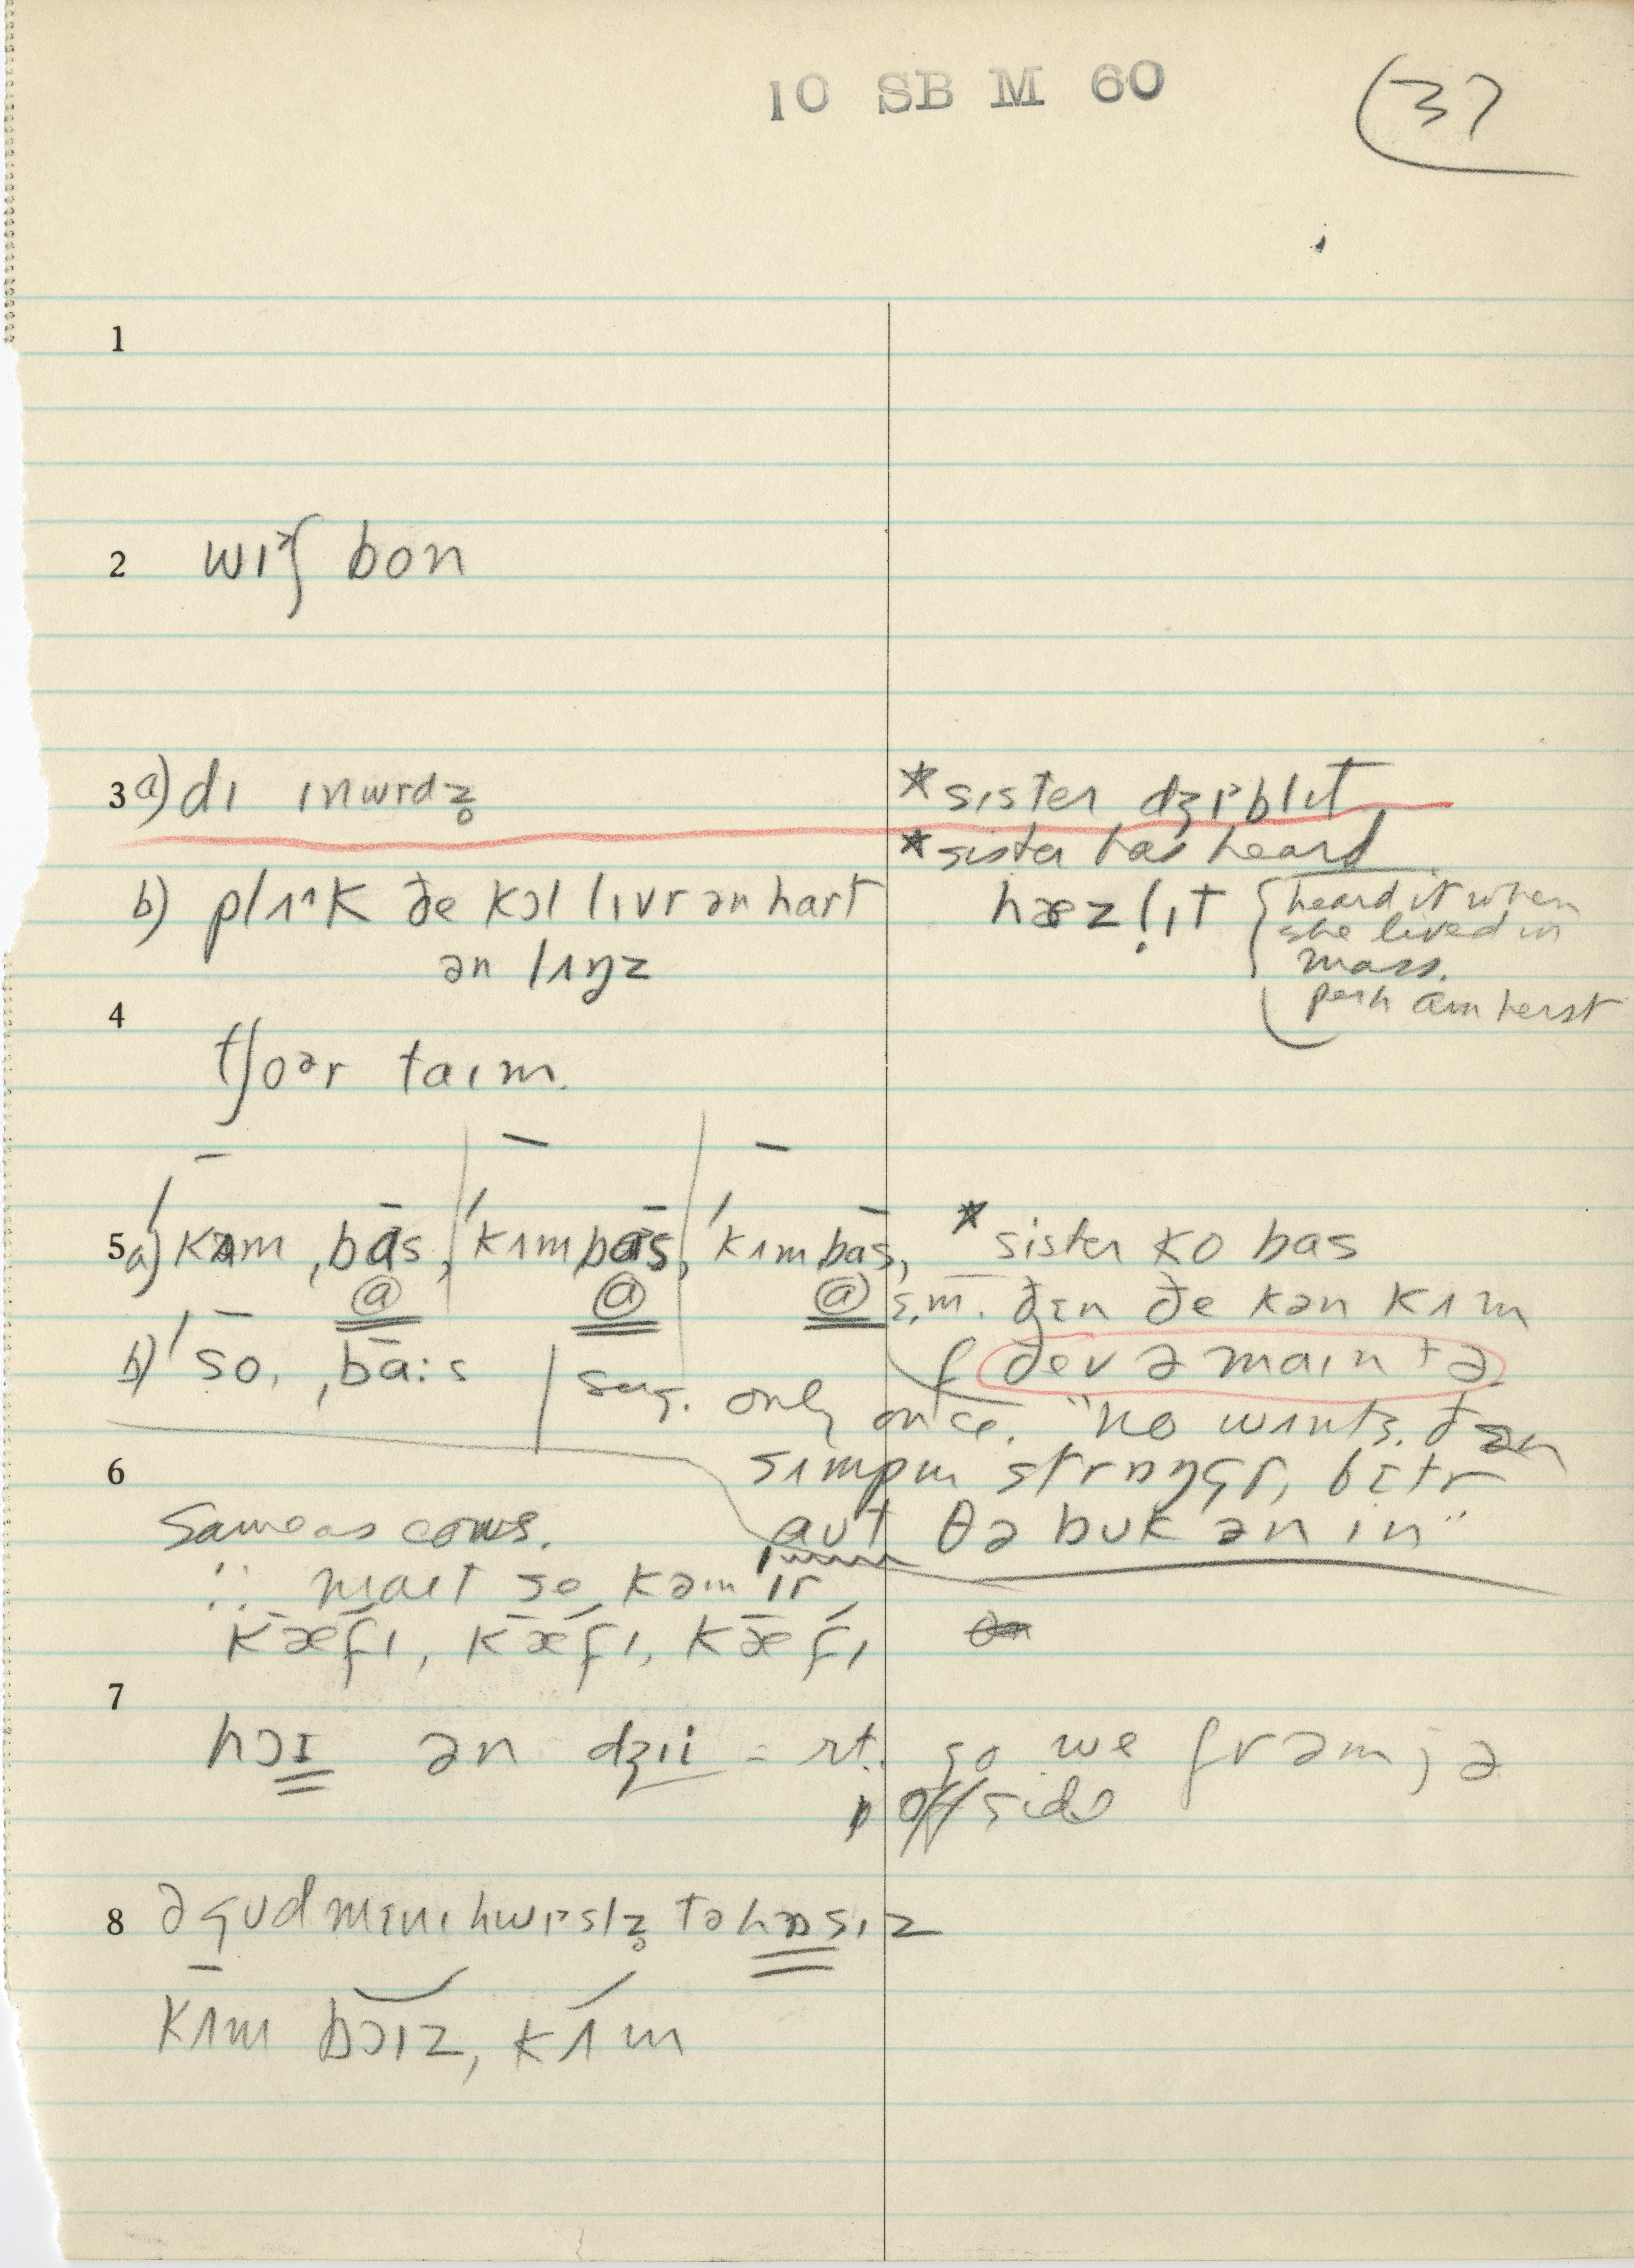 10 SB M 60
37
1
2 wɪʃ bon
3 a) dɪ ɪnwrdz̥
*sister dʒɪblɪt
*sister has heard
b) plʌk ðe kɔl lɪvr ən hart
ən lʌŋz
hæzl̩ɪt
heard it when
she lived in
mass.
perh Amherst
4
tʃoər taɪm.
5 a) kʌm ˌbās, ˈkʌmbās, ˈkʌmbās,
ⓐ ⓐ ⓐ
* sister ko bas
s.m. ðɛn ðe kən kʌm
ðev ə maɪn tə
b) ˈso, ˌbā:s
sez. only once. "ko wɪnts. ðɛn
sɪmpm strɒŋgr, bɛtr
aut θə buk ən in"
6
Same as cows.
∴ maɪt se kəm ɪr
kǣfɪ, kǣfɪ, kǣfɪ
7
hɔɪ ən dʒii = rt. go we frəm; ə
offside
8 ə gud mɛnɪ hwɪslz̥ tə hɒsɪz
kʌm bɔɪz, kʌm